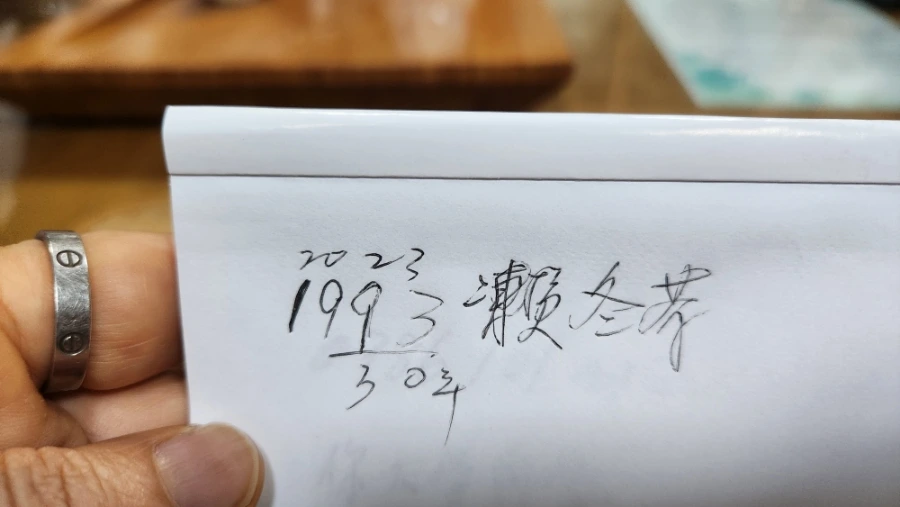 2023
1993 瀨冬
30年